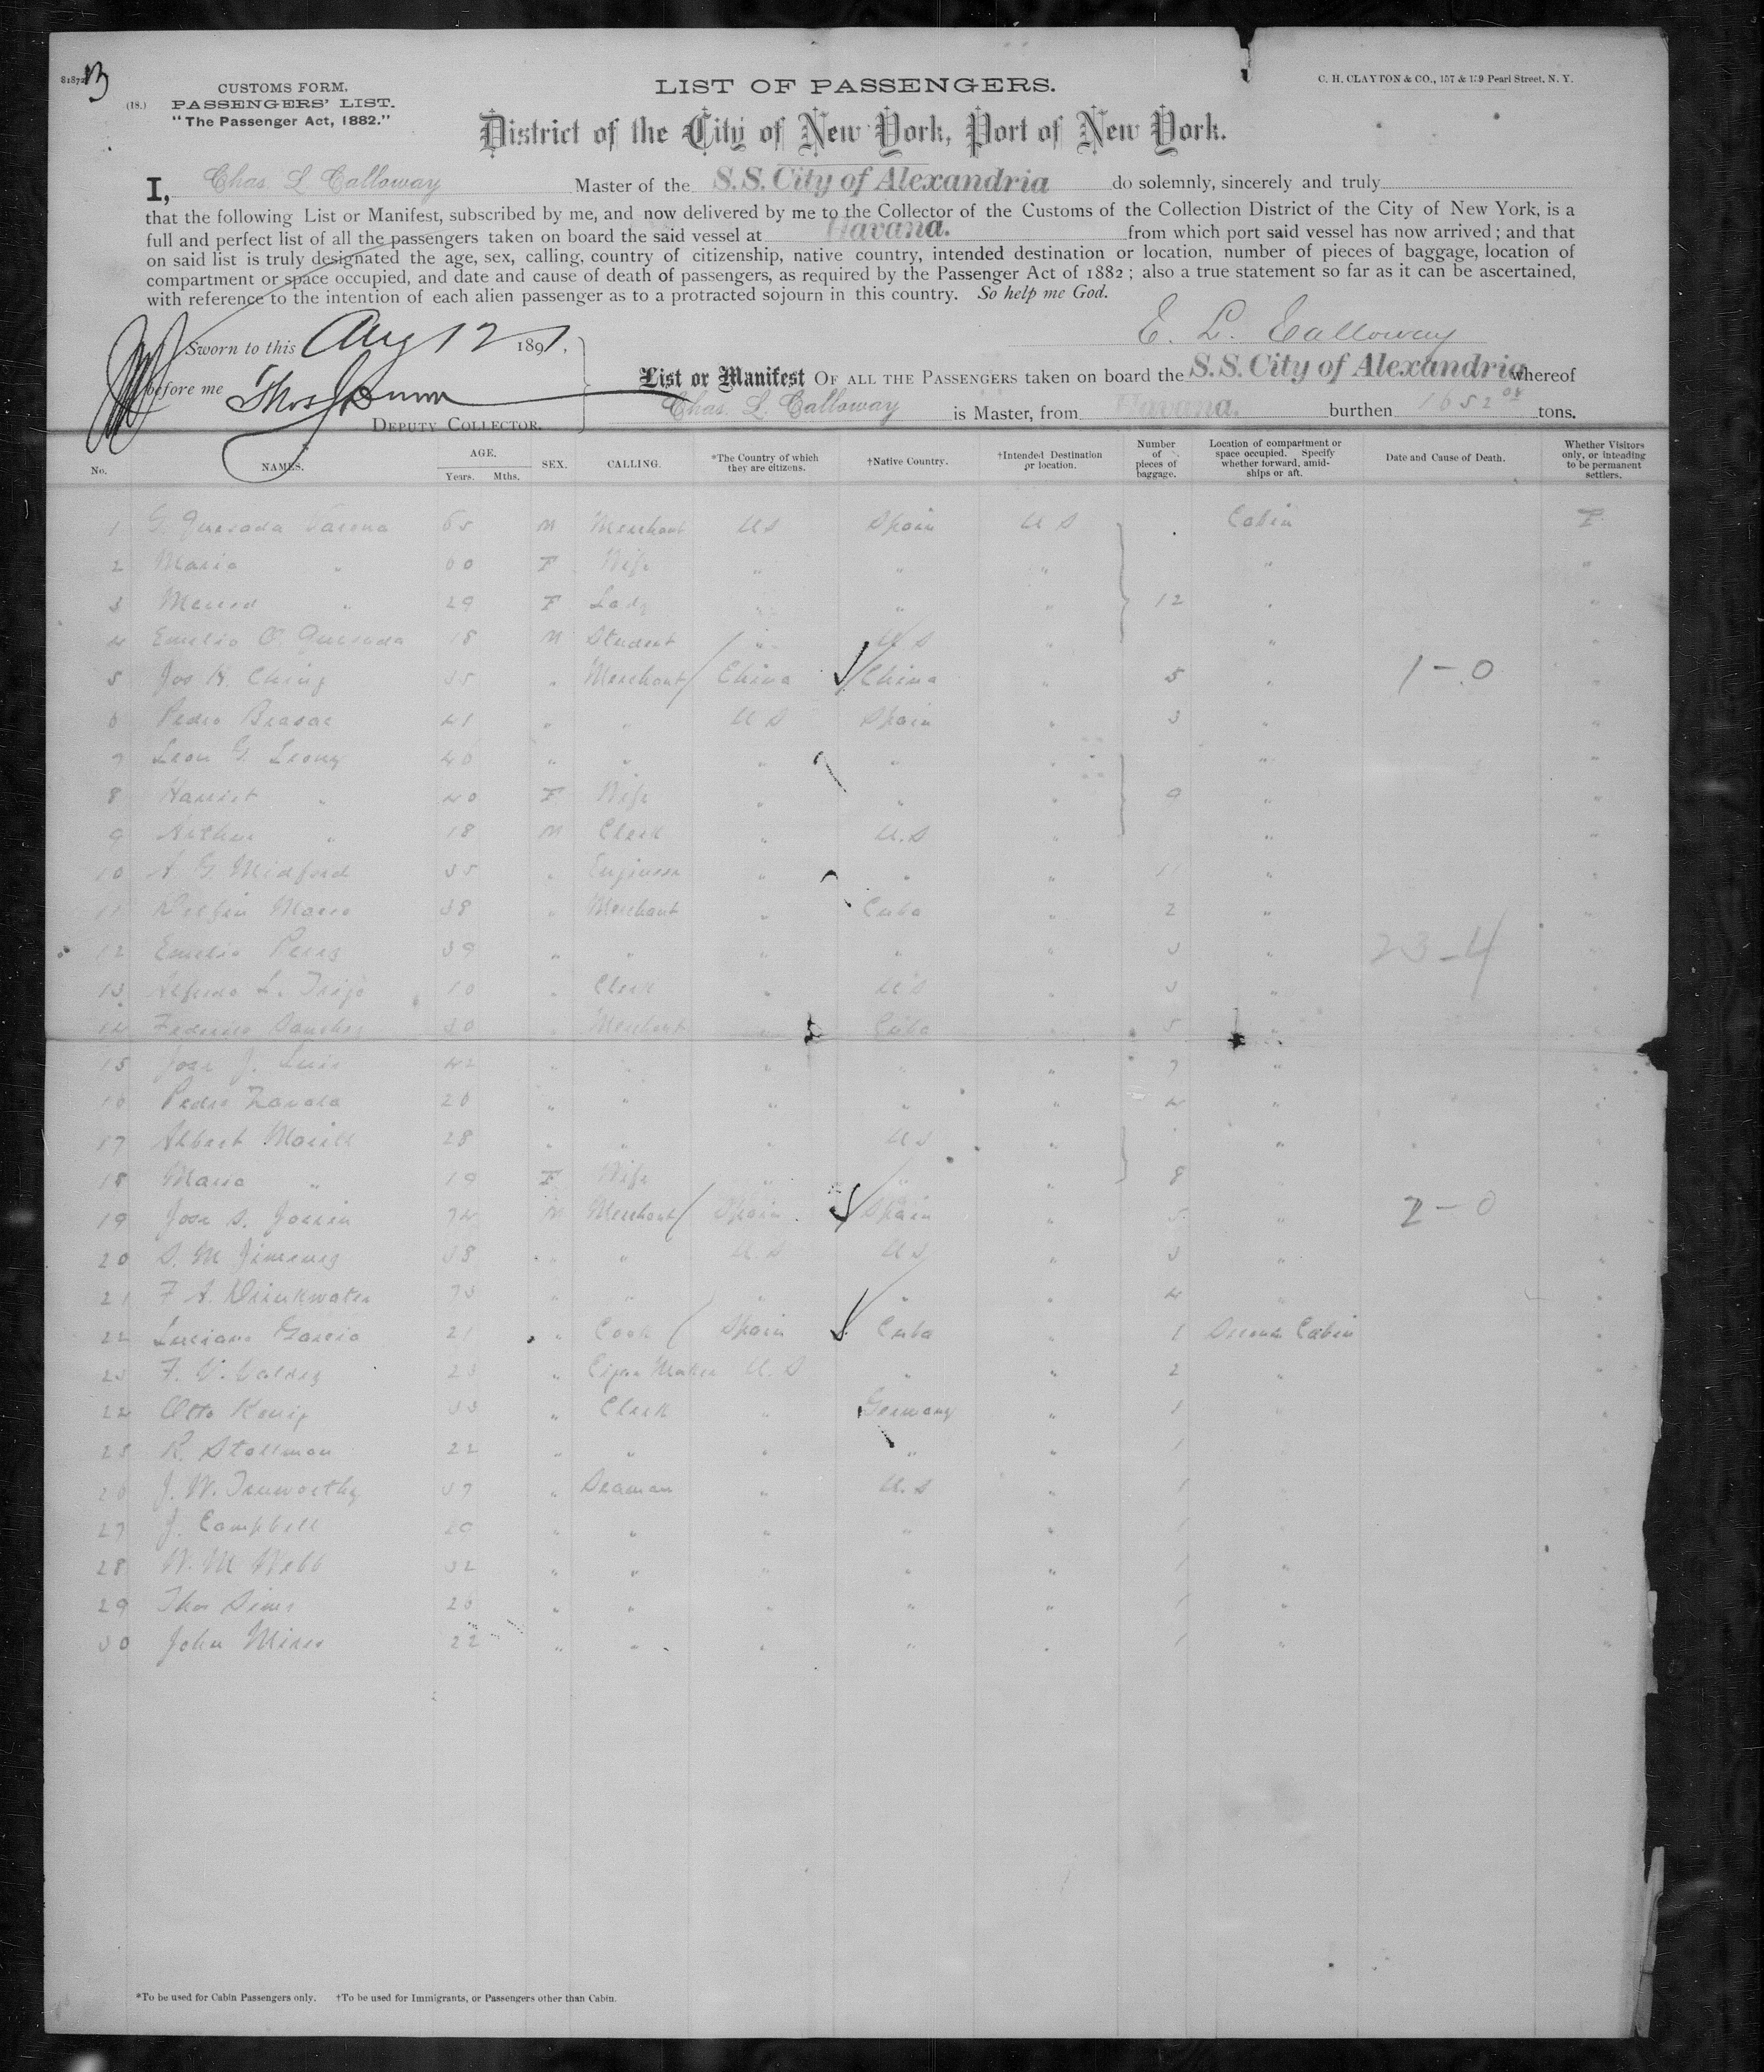 CUSTOMS FORM.
(18.) PASSENGERS' LIST.
"The Passenger Act, 1882."
LIST OF PASSENGERS.
C. H. CLAYTON & CO., 157 & 159 Pearl Street, N. Y.
District of the City of New York, Port of New York.
I, Chas. L Calloway Master of the S.S. City of Alexandria do solemnly, sincerely and truly
that the following List or Manifest, subscribed by me, and now delivered by me to the Collector of the Customs of the Collection District of the City of New York, is a
full and perfect list of all the passengers taken on board the said vessel at Havana. from which port said vessel has now arrived; and that
on said list is truly designated the age, sex, calling, country of citizenship, native country, intended destination or location, number of pieces of baggage, location of
compartment or space occupied, and date and cause of death of passengers, as required by the Passenger Act of 1882; also a true statement so far as it can be ascertained,
with reference to the intention of each alien passenger as to a protracted sojourn in this country. So help me God.
C. L. Calloway
Sworn to this Aug 12 1891.
before me Thos J Dunn
DEPUTY COLLECTOR.
List or Manifest OF ALL THE PASSENGERS taken on board the S.S. City of Alexandria whereof
Chas. L. Calloway is Master, from Havana. burthen 1652 tons.
No. NAMES. AGE. Years. Mths. SEX. CALLING. *The Country of which they are citizens. †Native Country. †Intended Destination or location. Number of pieces of baggage. Location of compartment or space occupied. Specify whether forward, amidships or aft. Date and Cause of Death. Whether Visitors only, or intending to be permanent settlers.
1 G. Quesada 65 M Merchant US Spain US Cabin
2 Maria " 60 F Wife " " " " "
3 " 29 F Lady " " " 12 " "
4 Emilio O. Quesada 18 M Student " US " "
5 Jos. Ching 35 " Merchant China China " 5 " 1-0 "
6 Pedro 41 " " US Spain " 3 " "
7 Leon G. Leony 40 " " " " " " "
8 Harriet " 40 F Wife " " " 9 " "
9 Arthur " 18 M Clerk " U.S " " "
10 A G. Midford 35 " Engineer " " " 11 " "
11 Delfin 38 " Merchant " Cuba " 2 " "
12 Emilio Perez 39 " " " " " 3 " 23-4 "
13 Alfredo L. Trujo 10 " Clerk " US " 3 " "
14 Federico Sanchez 30 " Merchant " Cuba " 5 " "
15 Jose J. Luis 42 " " " " " 7 " "
16 Pedro Zavala 26 " " " " " 4 " "
17 Albert 28 " " " US " " "
18 Maria " 19 F Wife " " " 8 " "
19 Jose S. 74 M Merchant Spain Spain " 5 " 2-0 "
20 S. M Jimenez 38 " " U.S US " 3 " "
21 F A. Drinkwater 73 " " " " " 4 " "
22 Luciano Garcia 21 " Cook Spain Cuba " 1 Second Cabin "
23 F. V. Valdez 23 " Cigar Maker U.S " " 2 " "
24 Otto Konig 33 " Clerk " Germany " 1 " "
25 R. Stallman 22 " " " " " 1 "
26 J. W. Trueworthy 37 " Seaman " U.S " 1 "
27 J. Campbell 29 " " " " " 1 "
28 W. M Webb 32 " " " " " 1 " "
29 Thos Sims 26 " " " " " 1 " "
30 John 22 " " " " " 1 " "
*To be used for Cabin Passengers only. †To be used for Immigrants, or Passengers other than Cabin.